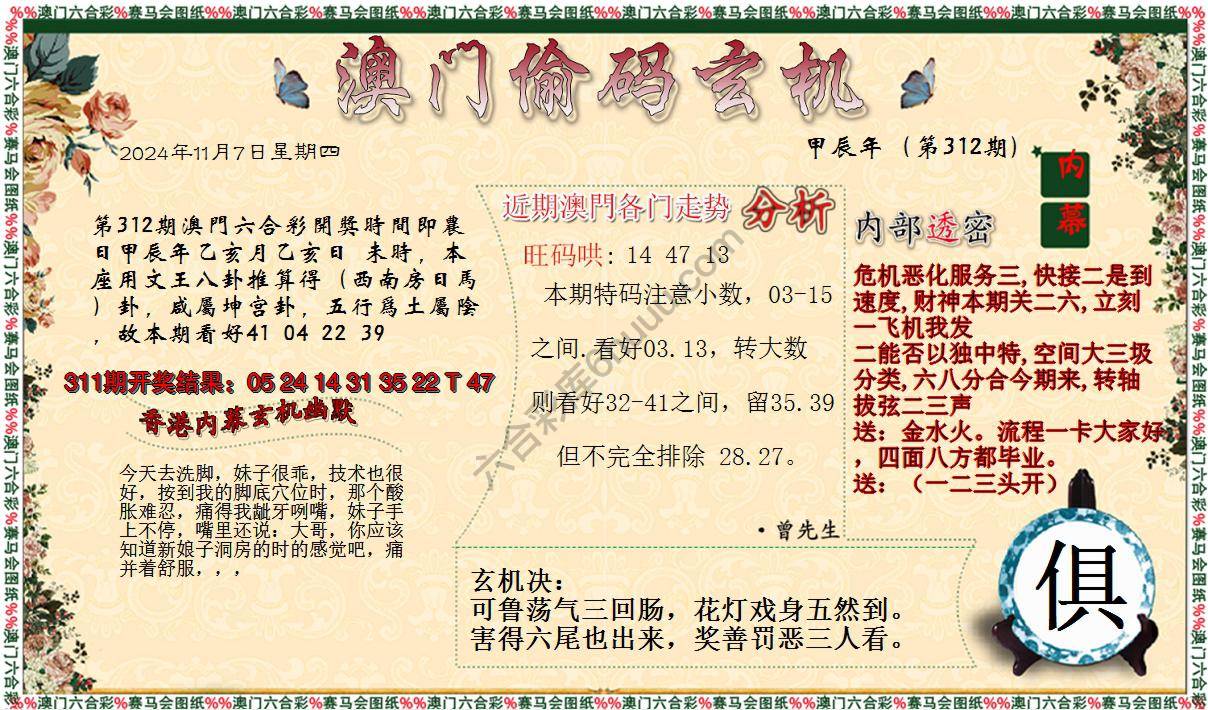 %%澳门六合彩%赛马会图纸%%澳门六合彩%赛马会图纸%%澳门六合彩%赛马会图纸%%澳门六合彩%赛马会图纸%%澳门六合彩%赛马会图纸%%澳门六合彩%赛马会图纸%%
澳门偷码玄机
2024年11月7日星期四
甲辰年（第312期）
内幕
第312期澳門六合彩開獎時間即農
日甲辰年乙亥月乙亥日 未時，本
座用文王八卦推算得（西南房日馬
）卦，咸屬坤宫卦，五行爲土屬陰
，故本期看好41 04 22 39
311期开奖结果：05 24 14 31 35 22 T 47
香港内幕玄机幽默
今天去洗脚，妹子很乖，技术也很
好，按到我的脚底穴位时，那个酸
胀难忍，痛得我龇牙咧嘴，妹子手
上不停，嘴里还说：大哥，你应该
知道新娘子洞房的时的感觉吧，痛
并着舒服，，，
近期澳門各门走势 分析
旺码哄：14 47 13
本期特码注意小数，03-15
之间.看好03.13，转大数
则看好32-41之间，留35.39
但不完全排除 28.27。
·曾先生
内部透密
危机恶化服务三,快接二是到
速度,财神本期关二六,立刻
一飞机我发
二能否以独中特,空间大三圾
分类,六八分合今期来,转轴
拔弦二三声
送：金水火。流程一卡大家好
，四面八方都毕业。
送：（一二三头开）
玄机决：
可鲁荡气三回肠，花灯戏身五然到。
害得六尾也出来，奖善罚恶三人看。
俱
%%澳门六合彩%赛马会图纸%%澳门六合彩%赛马会图纸%%澳门六合彩%赛马会图纸%%澳门六合彩%赛马会图纸%%澳门六合彩%赛马会图纸%%澳门六合彩%赛马会图纸%%